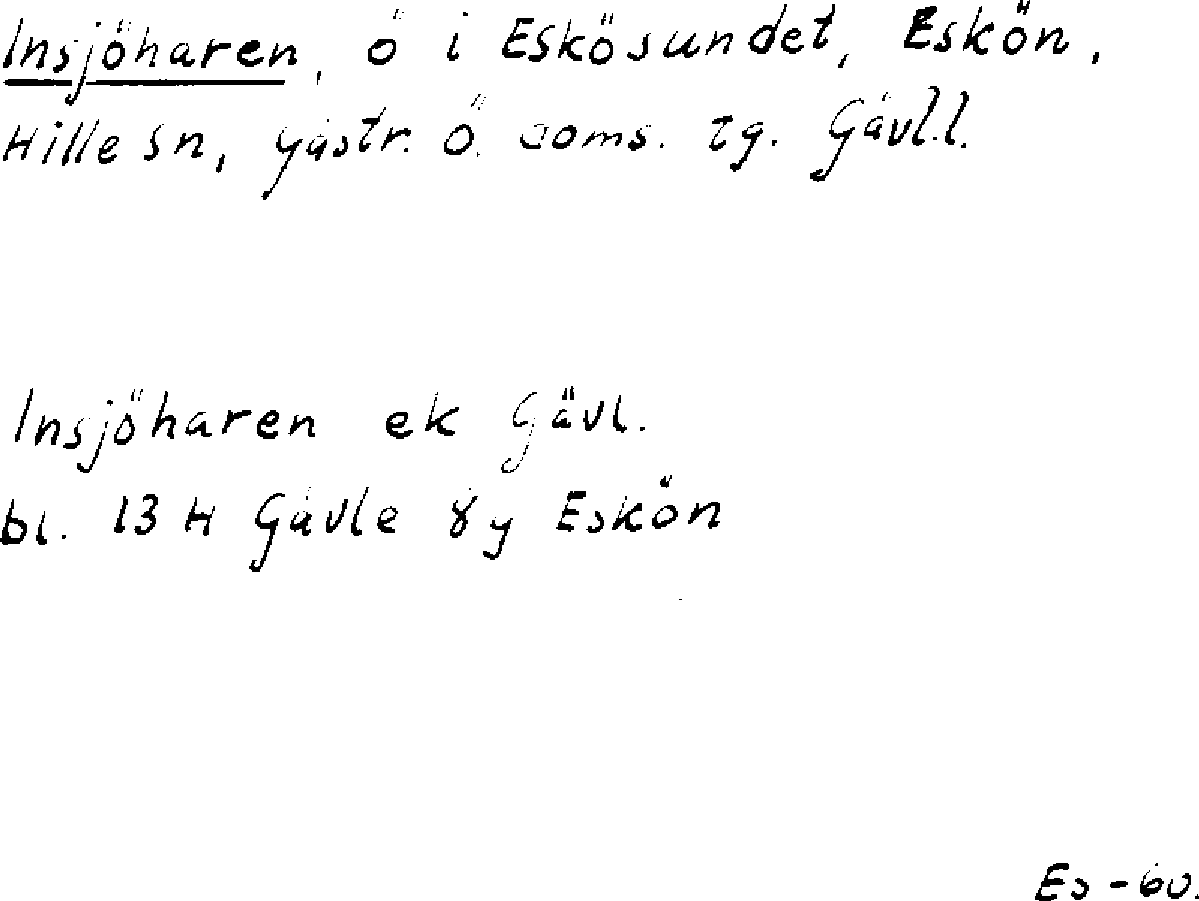 Insjöharen, ö i Eskösundet, Eskön,
Hille sn, Gästr. ö. doms. tg. Gävl.l.
Insjöharen ek Gävl.
bl. 13 H Gävle 8y Eskön
Es -60.